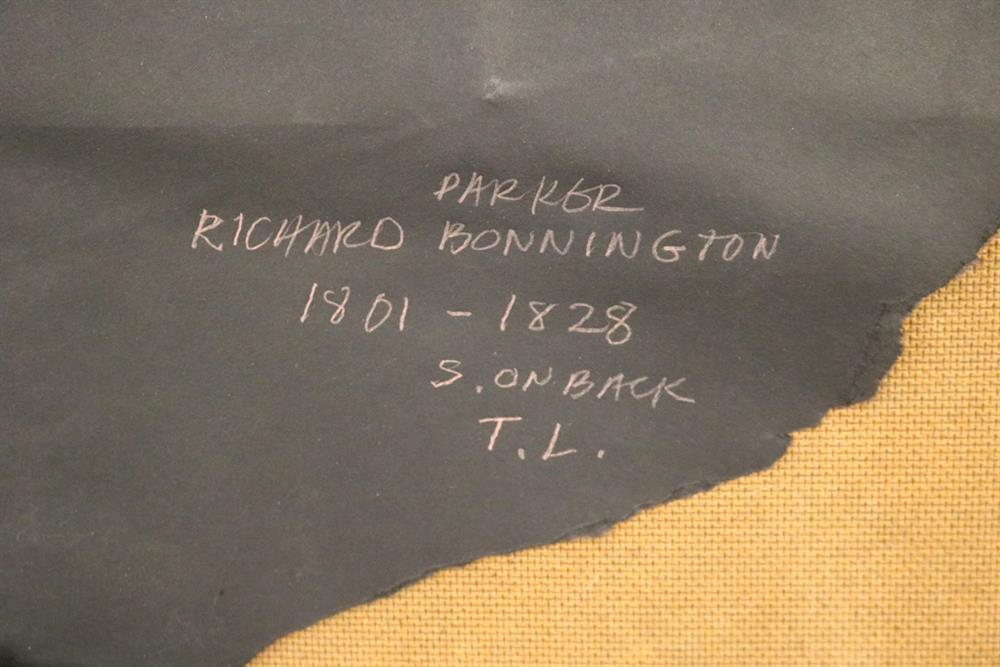 PARKER
RICHARD BONNINGTON
1801 - 1828
S. ON BACK
T.L.